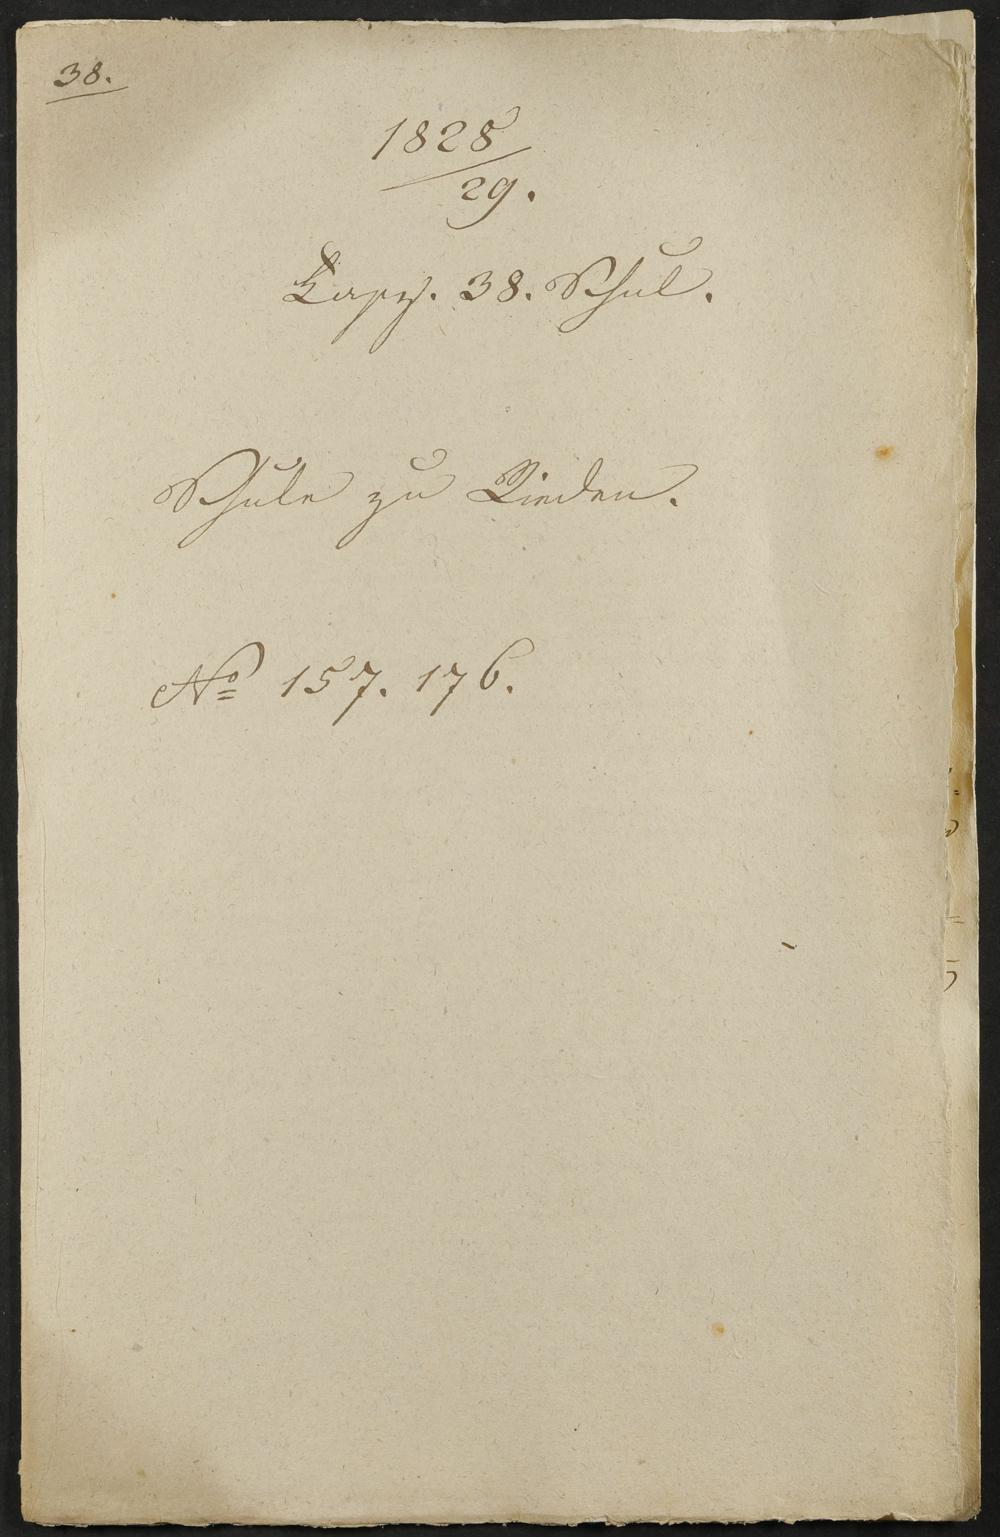 38.
1828/
29.
Kapz. 38. Schul.
Schule zu Rieden.
No 157. 176.